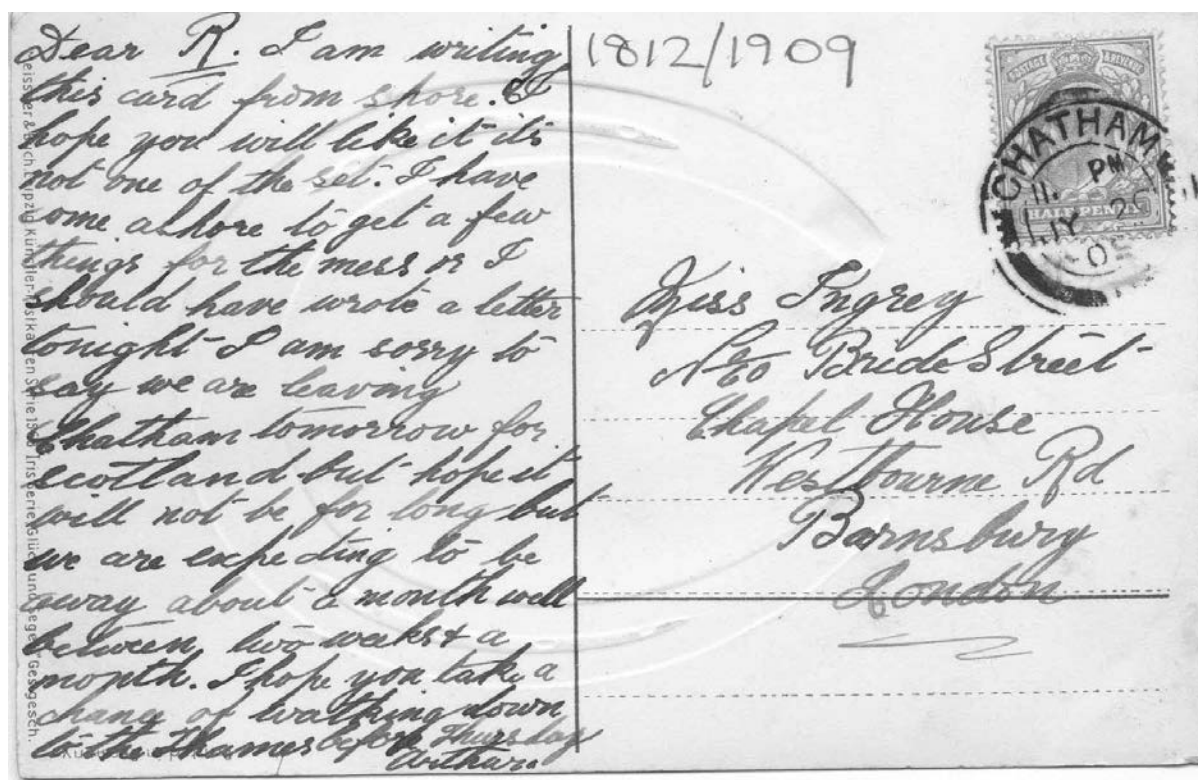 Dear R. I am writing
this card from shore. I
hope you will like it its
not one of the set. I have
come ashore to get a few
things for the mess or I
should have wrote a letter
tonight I am sorry to
say we are leaving
Chatham tomorrow for
scotland but hope it
will not be for long but
we are expecting to be
away about a month well
between two weeks & a
month. I hope you take a
chance of walking down
to the Thames before Thursday
Arthur.
1812/1909
POSTAGE
REVENUE
HALF PENNY
CHATHAM
11. PM
JY 26
Miss Ingrey
Bride Street
Chapel House
Westbourne Rd
Barnsbury
London